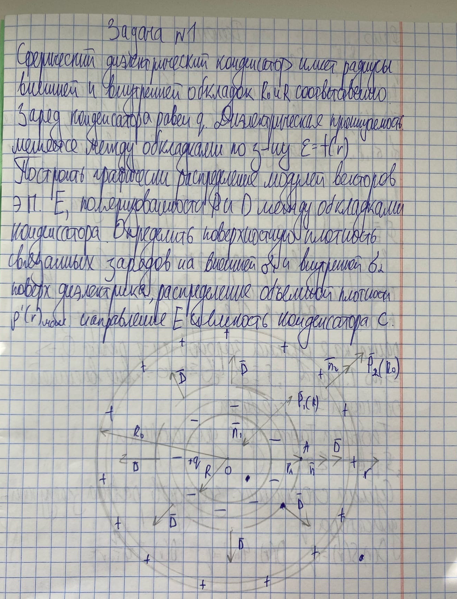 Задача №1
Сферический диэлектрический конденсатор имеет радиусы
внешней и внутренней обкладок R₀ и R соответственно
Заряд конденсатора равен q. Диэлектрическая проницаемость
меняется между обкладками по з-ну ε=f(r)
Построить графически распределение модулей векторов
ЭП E, поляризованности P и D между обкладками
конденсатора. Определить поверхностную плотность
связанных зарядов на внешней и внутренней σ₂
поверх диэлектрика, распределение объемной плотности
ρ'(r) направление E емкость конденсатора C.
D̄
D̄
n̄₂
P̄₂(R₀)
P̄₁(R)
R₀
n̄₁
A
D̄
D̄
+q
R
O
n̄
r
D̄
D̄
D̄